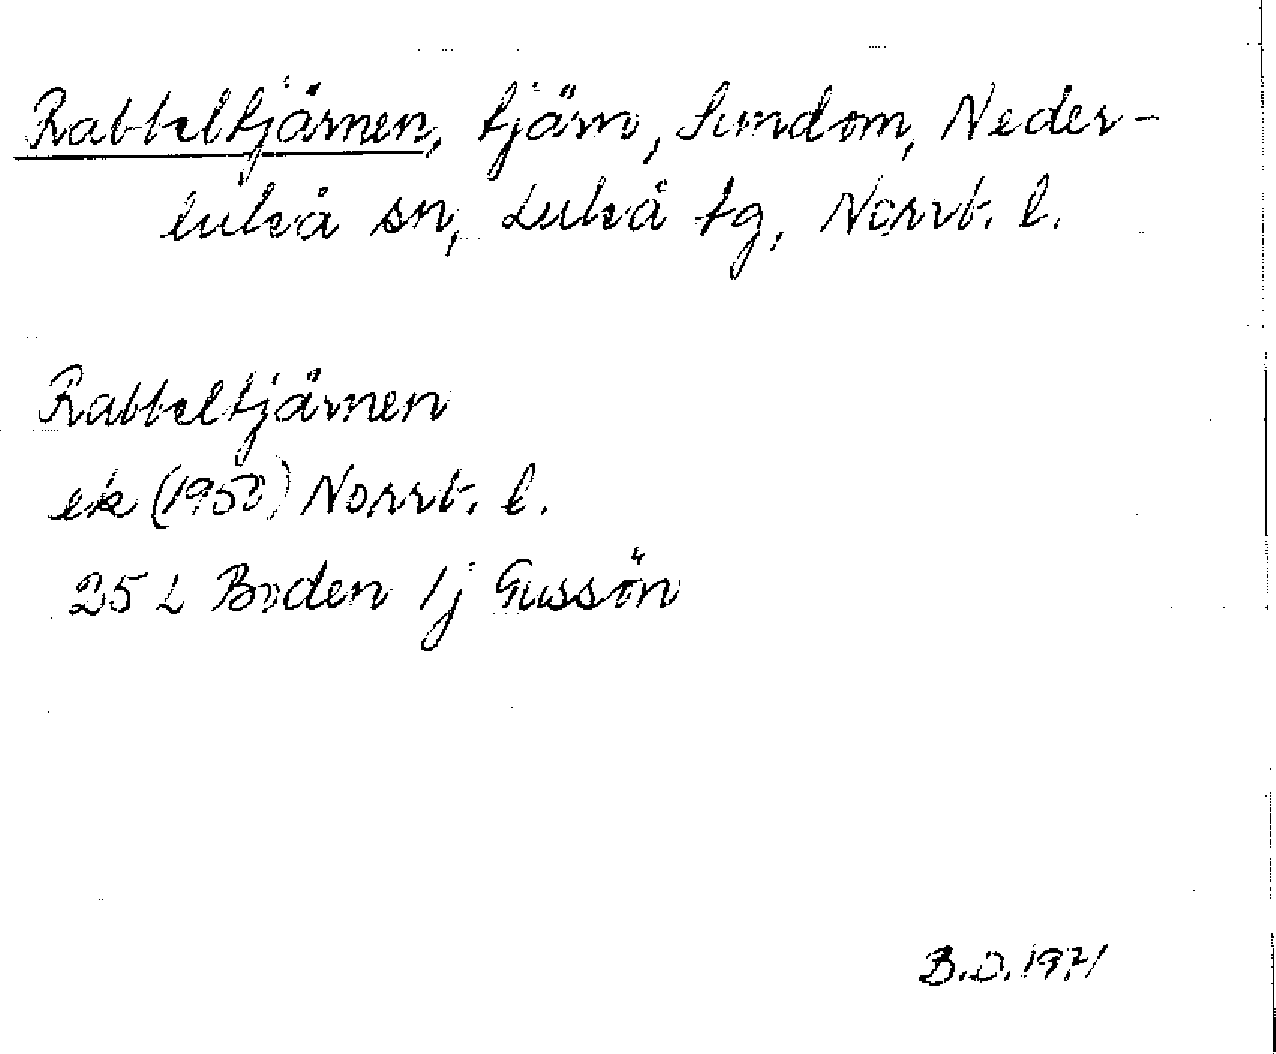 Rabbeltjärnen, tjärn, Sundom, Neder-
luleå sn, Luleå tg, Norrb. l.
Rabbeltjärnen
ek (1950) Norrb. l.
25 L Boden 1j Gussön
B.D. 1971